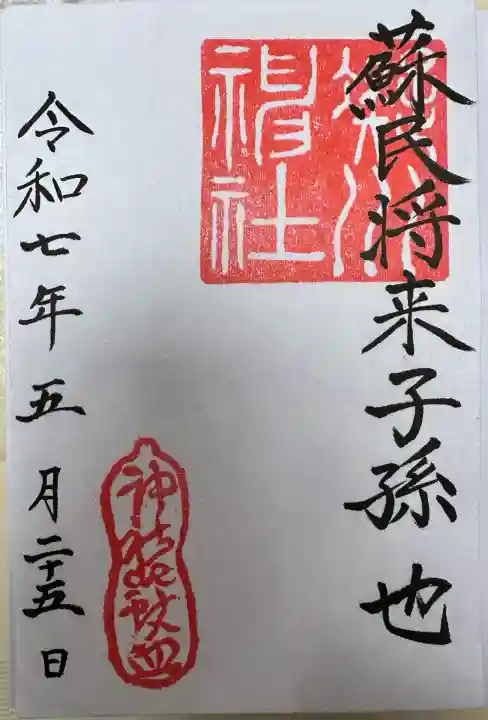 蘇民将来子孫也
社
令和七年五月二十五日